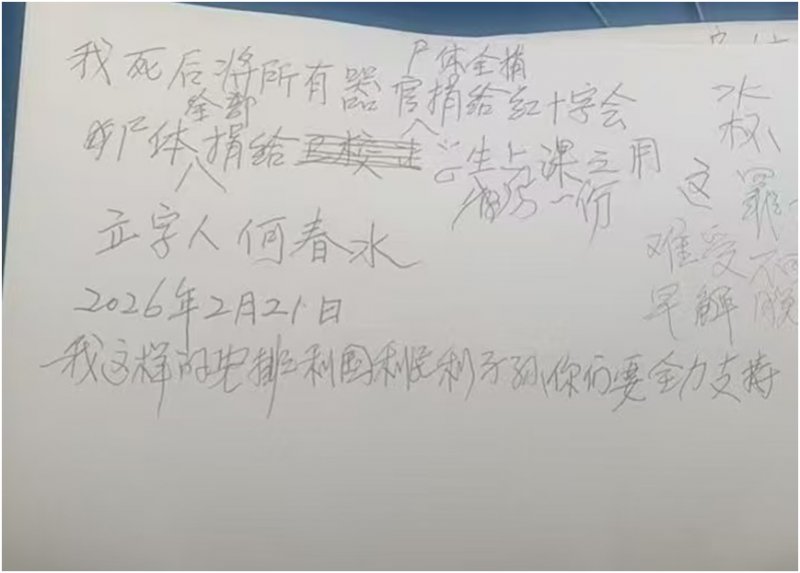 尸体全捐
我死后将所有器官捐给红十字会
全部
尸体捐给
生上课之用
一份
立字人何春水
2026年2月21日
我这样的安排利国利民利子孙,你们要全力支持
水
权
这罪
难受不
早解脱